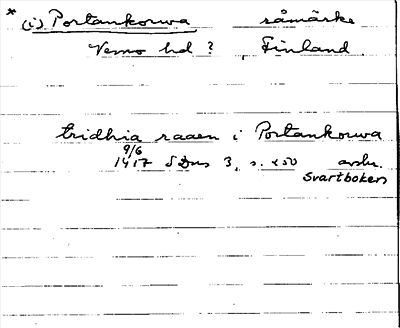 * (i) Portankorwa råmärke
Vemo hd ? , Finland.
tridhia raaen i Portankorwa
9/6
1417 SDns 3, s. 250 avskr.
Svartboken